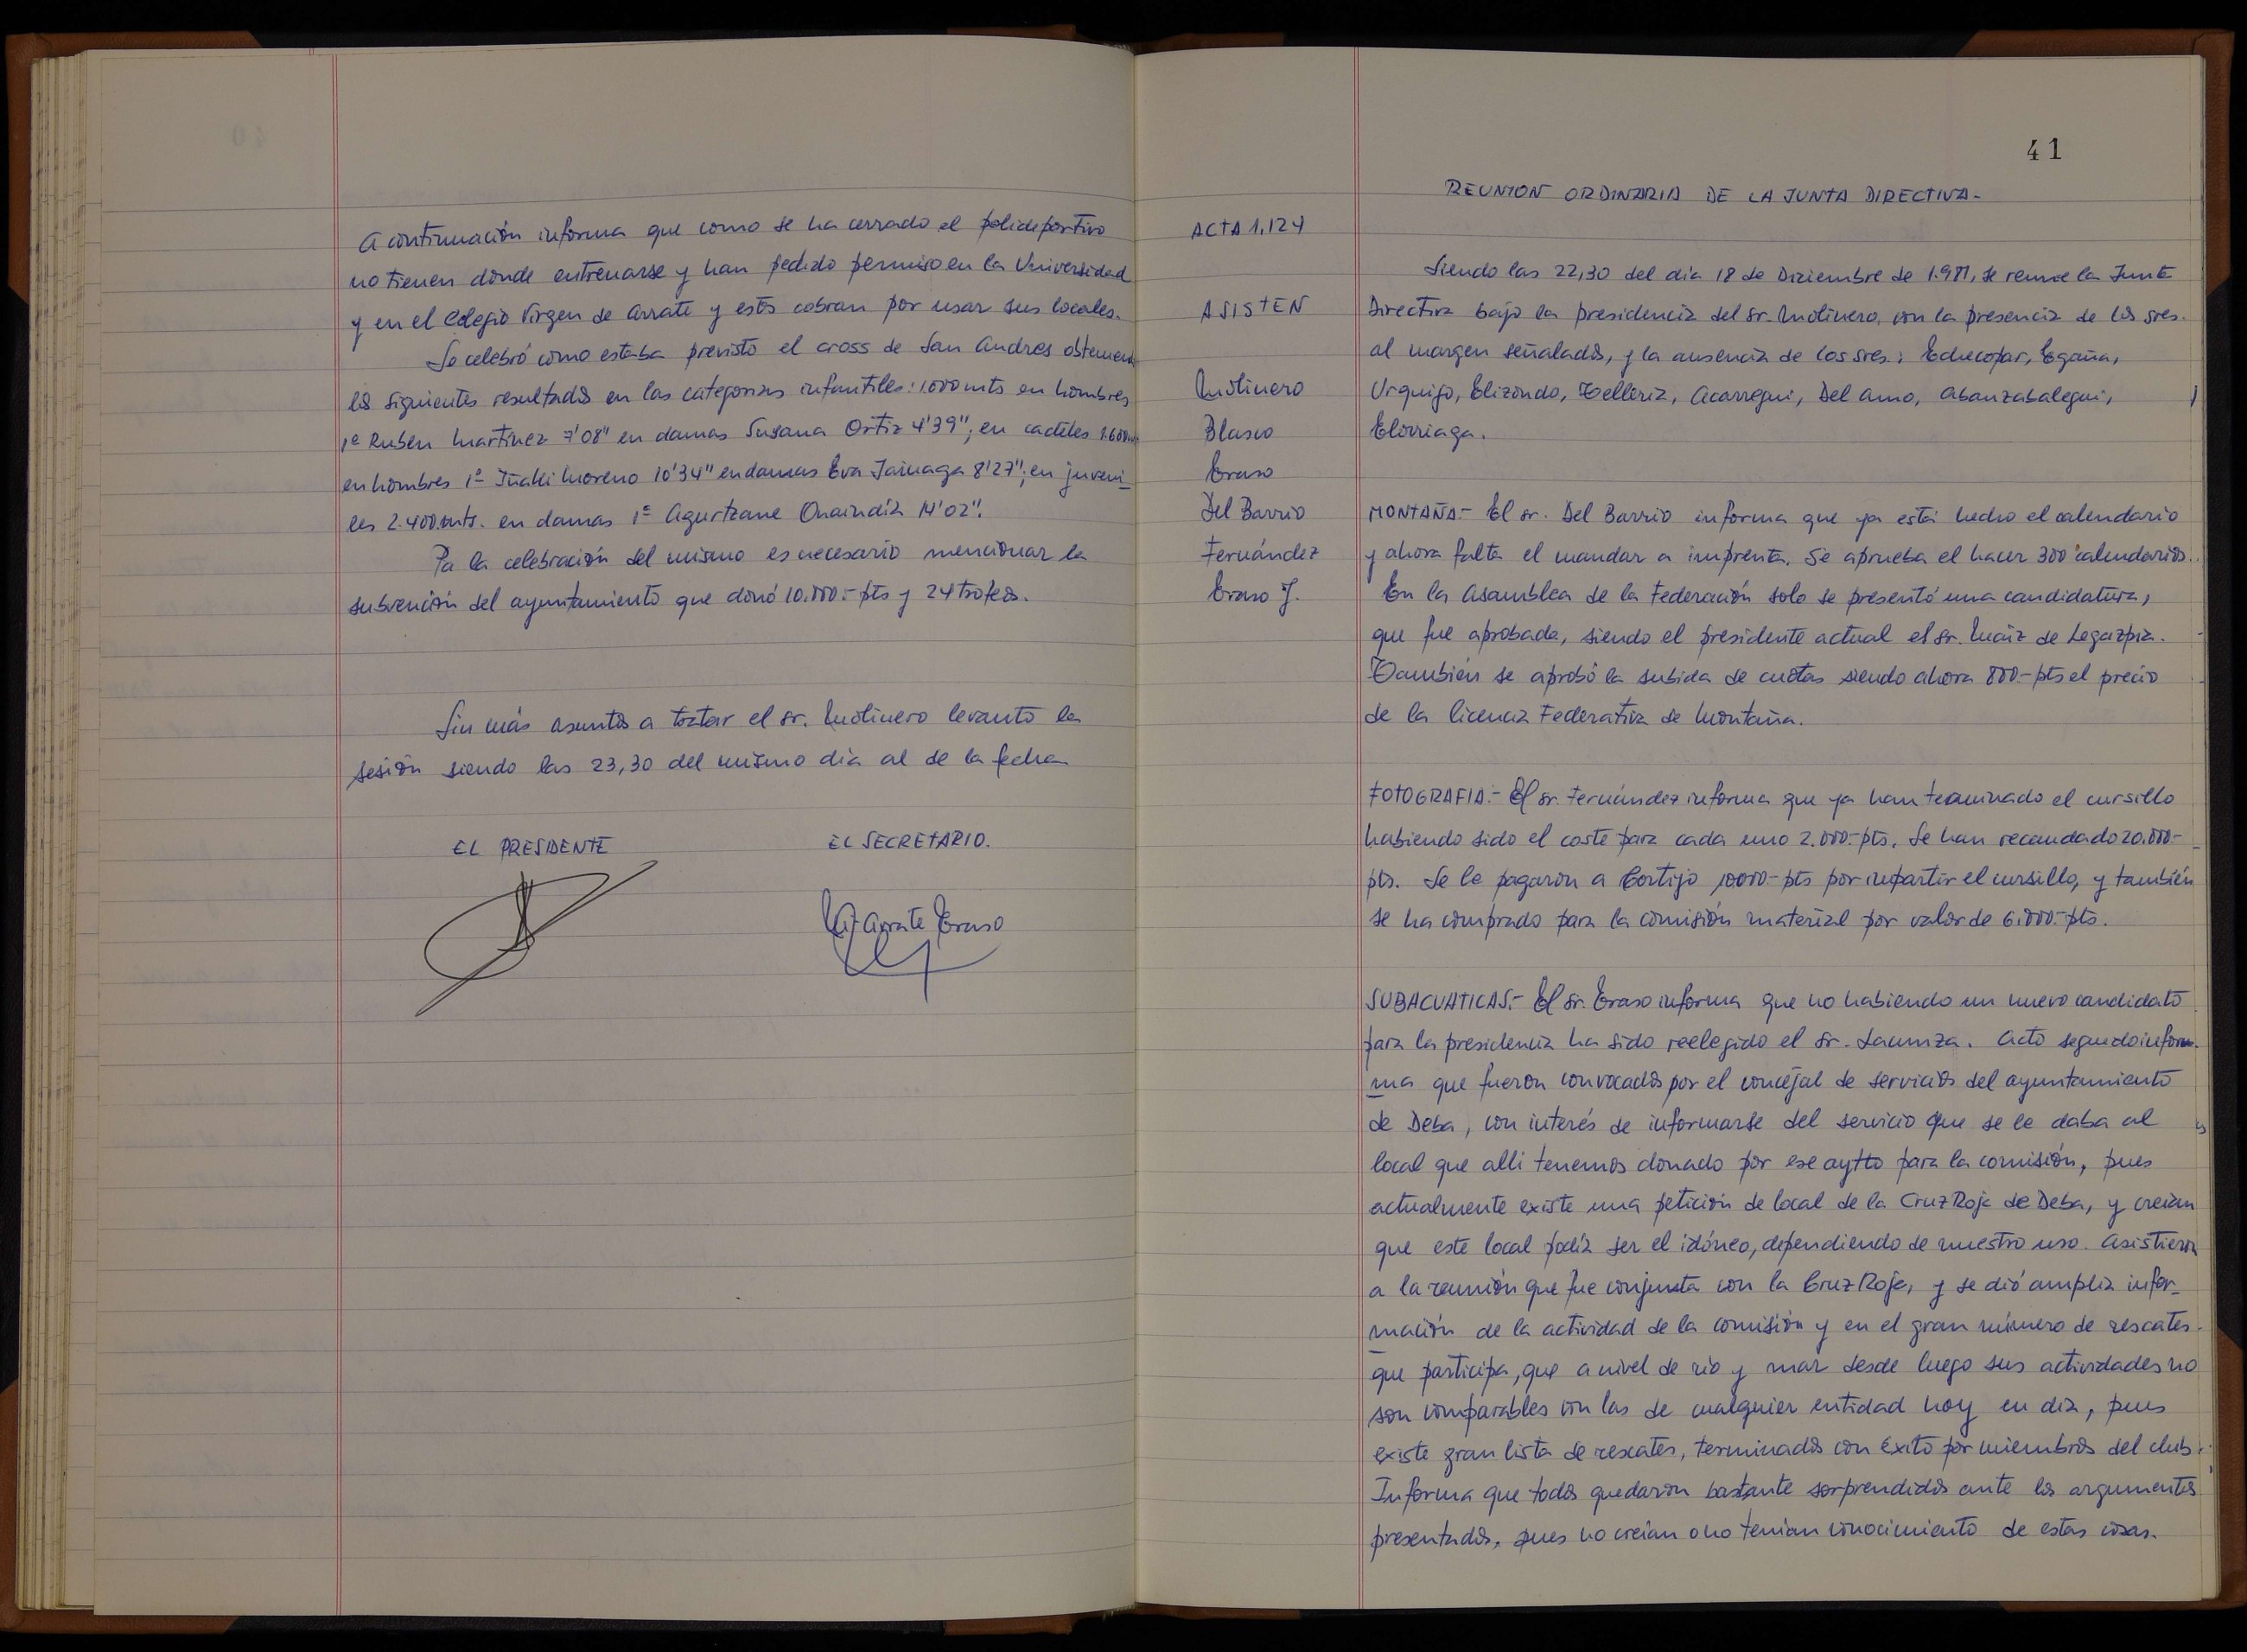 A continuación informa que como se ha cerrado el polideportivo
no tienen donde entrenarse y han pedido permiso en la Universidad
y en el Colegio Virgen de Arrate y estos cobran por usar sus locales.
Se celebró como estaba previsto el cross de San Andres
los siguientes resultados en las categorias infantiles: 1.000 mts en hombres
1º Ruben Martinez 7'08" en damas Susana Ortiz 4'39"; en cadetes 1.600
en hombres 1º Iñaki Moreno 10'34" en damas Eva Jainaga 8'27"; en juveni_
les 2.400 mts. en damas 1º Agurtzane Onaindía 14'02".
Pa la celebración del mismo es necesario mencionar la
subvención del ayuntamiento que donó 10.000.- pts y 24 trofeos.
Sin más asuntos a tratar el sr. Molinero levanto la
sesión siendo las 23,30 del mismo dia al de la fecha
EL PRESIDENTE
EL SECRETARIO.
Arrate Eraso
41
REUNION ORDINARIA DE LA JUNTA DIRECTIVA-
ACTA 1.124
Siendo las 22,30 del dia 18 de Diziembre de 1.981, se reune la Junta
ASISTEN
Directiva bajo la presidencia del sr. Molinero, con la presencia de los sres.
al margen señalados, y la ausencia de los sres: Echecopar, Egaña,
Molinero
Urquijo, Elizondo, Telleria, Acarregui, Del Amo, Abanzabalegui,
Blasco
Elorriaga.
Eraso
Del Barrio
MONTAÑA.- El sr. Del Barrio informa que ya está hecho el calendario
Fernández
y ahora falta el mandar a imprenta. Se aprueba el hacer 300 calendarios.
Eraso J.
En la Asamblea de la Federación solo se presentó una candidatura,
que fue aprobada, siendo el presidente actual el sr. Maiz de Legazpia.
También se aprobó la subida de cuotas siendo ahora 800.- pts el precio
de la licencia Federativa de Montaña.
FOTOGRAFIA.- El sr. Fernández informa que ya han terminado el cursillo
habiendo sido el coste para cada uno 2.000.- pts. Se han recaudado 20.000.-
pts. Se le pagaron a Cortijo 10000.- pts por impartir el cursillo, y también
se ha comprado para la comisión material por valor de 6.000.- pts.
SUBACUATICAS.- El sr. Eraso informa que no habiendo un nuevo candidato
para la presidencia ha sido reelegido el sr. Laumza. Acto seguido infor-
ma que fueron convocados por el concejal de servicios del ayuntamiento
de Deba, con interés de informarse del servicio que se le daba al
local que alli tenemos donado por ese aytto para la comisión, pues
actualmente existe una petición de local de la Cruz Roja de Deba, y creian
que este local podía ser el idóneo, dependiendo de nuestro uso. Asistieron
a la reunión que fue conjunta con la Cruz Roja, y se dió amplia infor_
mación de la actividad de la comisión y en el gran número de rescates
que participa, que a nivel de rio y mar desde luego sus actividades no
son comparables con las de cualquier entidad hoy en día, pues
existe gran lista de rescates, terminados con éxito por miembros del club.
Informa que todos quedaron bastante sorprendidos ante los argumentos
presentados, pues no creian o no tenian conocimiento de estas cosas.